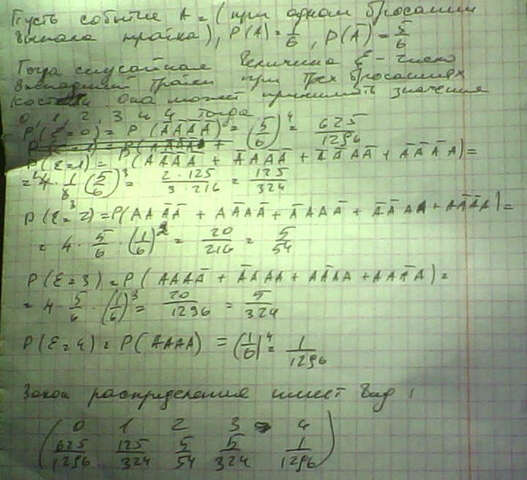 Пусть событие A = (при одном бросании
выпала тройка), P(A) = 1/6, P(Ā) = 5/6
Тогда случайная величина ξ - число
выпадений тройки при трех бросаниях
кости. Она может принимать значения
0, 1, 2, 3 и 4 тогда
P(ξ=0) = P(ĀĀĀĀ) = (5/6)^4 = 625/1296
P(ξ=1) = P(AĀĀĀ + ĀAĀĀ + ĀĀAĀ + ĀĀĀA) =
= 4 · 1/6 (5/6)^3 = 2·125/3·216 = 125/324
P(ξ=2) = P(AAĀĀ + AĀAĀ + ĀAAĀ + ĀĀAA + AĀĀA) =
= 4 · 5/6 · (1/6)^2 = 20/216 = 5/54
P(ξ=3) = P(AAAĀ + ĀAAA + AĀAA + AAĀA) =
= 4 · 5/6 · (1/6)^3 = 20/1296 = 5/324
P(ξ=4) = P(AAAA) = (1/6)^4 = 1/1296
Закон распределения имеет вид:
0 1 2 3 4
625/1296 125/324 5/54 5/324 1/1296